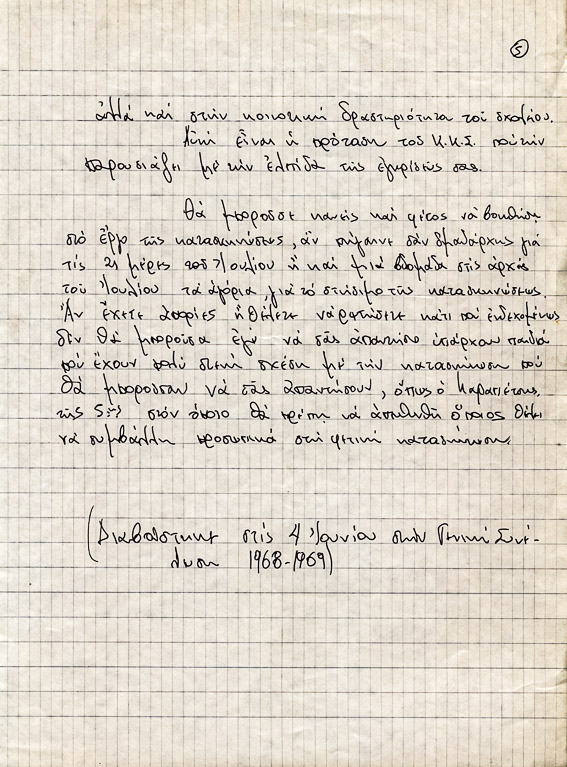 5
ἀλλά καί στήν κοινοτική δραστηριότητα τοῦ σχολείου.
Αὐτή εἶναι ἡ πρόταση τοῦ Κ.Κ.Σ. πού τήν
παρουσιάζει μέ τήν ἐλπίδα τῆς ἐγκρίσεώς σας.
Θά μποροῦσε κανείς καί φέτος νά βοηθήση
στό ἔργο τῆς κατασκηνώσεως, ἄν πήγαινε σάν ὁμαδάρχης γιά
τίς 21 μέρες τοῦ Ἰουλίου ἤ καί μιά βδομάδα στίς ἀρχές
τοῦ Ἰουλίου τά ἀγόρια, γιά τό στήσιμο τῆς κατασκηνώσεως.
Ἄν ἔχετε ἀπορίες ἤ θέλετε νά ρωτήσετε κάτι πού ἐνδεχομένως
δέν θά μποροῦσα ἐγώ νά σᾶς ἀπαντήσω ὑπάρχουν παιδιά
πού ἔχουν πολύ στενή σχέση μέ τήν κατασκήνωση πού
θά μποροῦσαν νά σᾶς ἀπαντήσουν, ὅπως ὁ Καραπιέτης,
τῆς στόν ὁποῖο θά πρέπη νά ἀπευθυνθῆ ὅποιος θέλει
νά συμβάλλη προσωπικά στή φετινή κατασκήνωση.
(Διαβάστηκε στίς 4 Ἰουνίου στήν Γενική Συνέ-
λευση 1968-1969)